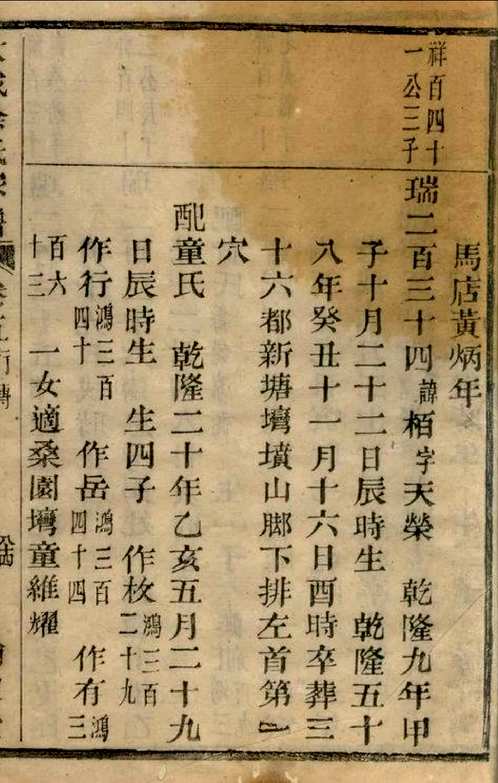 馬店黃炳年
祥百四十
一公三子
瑞二百三十四諱栢字天榮 乾隆九年甲
子十月二十二日辰時生 乾隆五十
八年癸丑十一月十六日酉時卒葬三
十六都新塘壪墳山脚下排左首第二
穴
配童氏 乾隆二十年乙亥五月二十九
日辰時生 生四子 作枚鴻三百二十九
作行鴻三百四十 作岳鴻三百四十四 作有鴻三
百六十三 一女適桑園壪童維耀